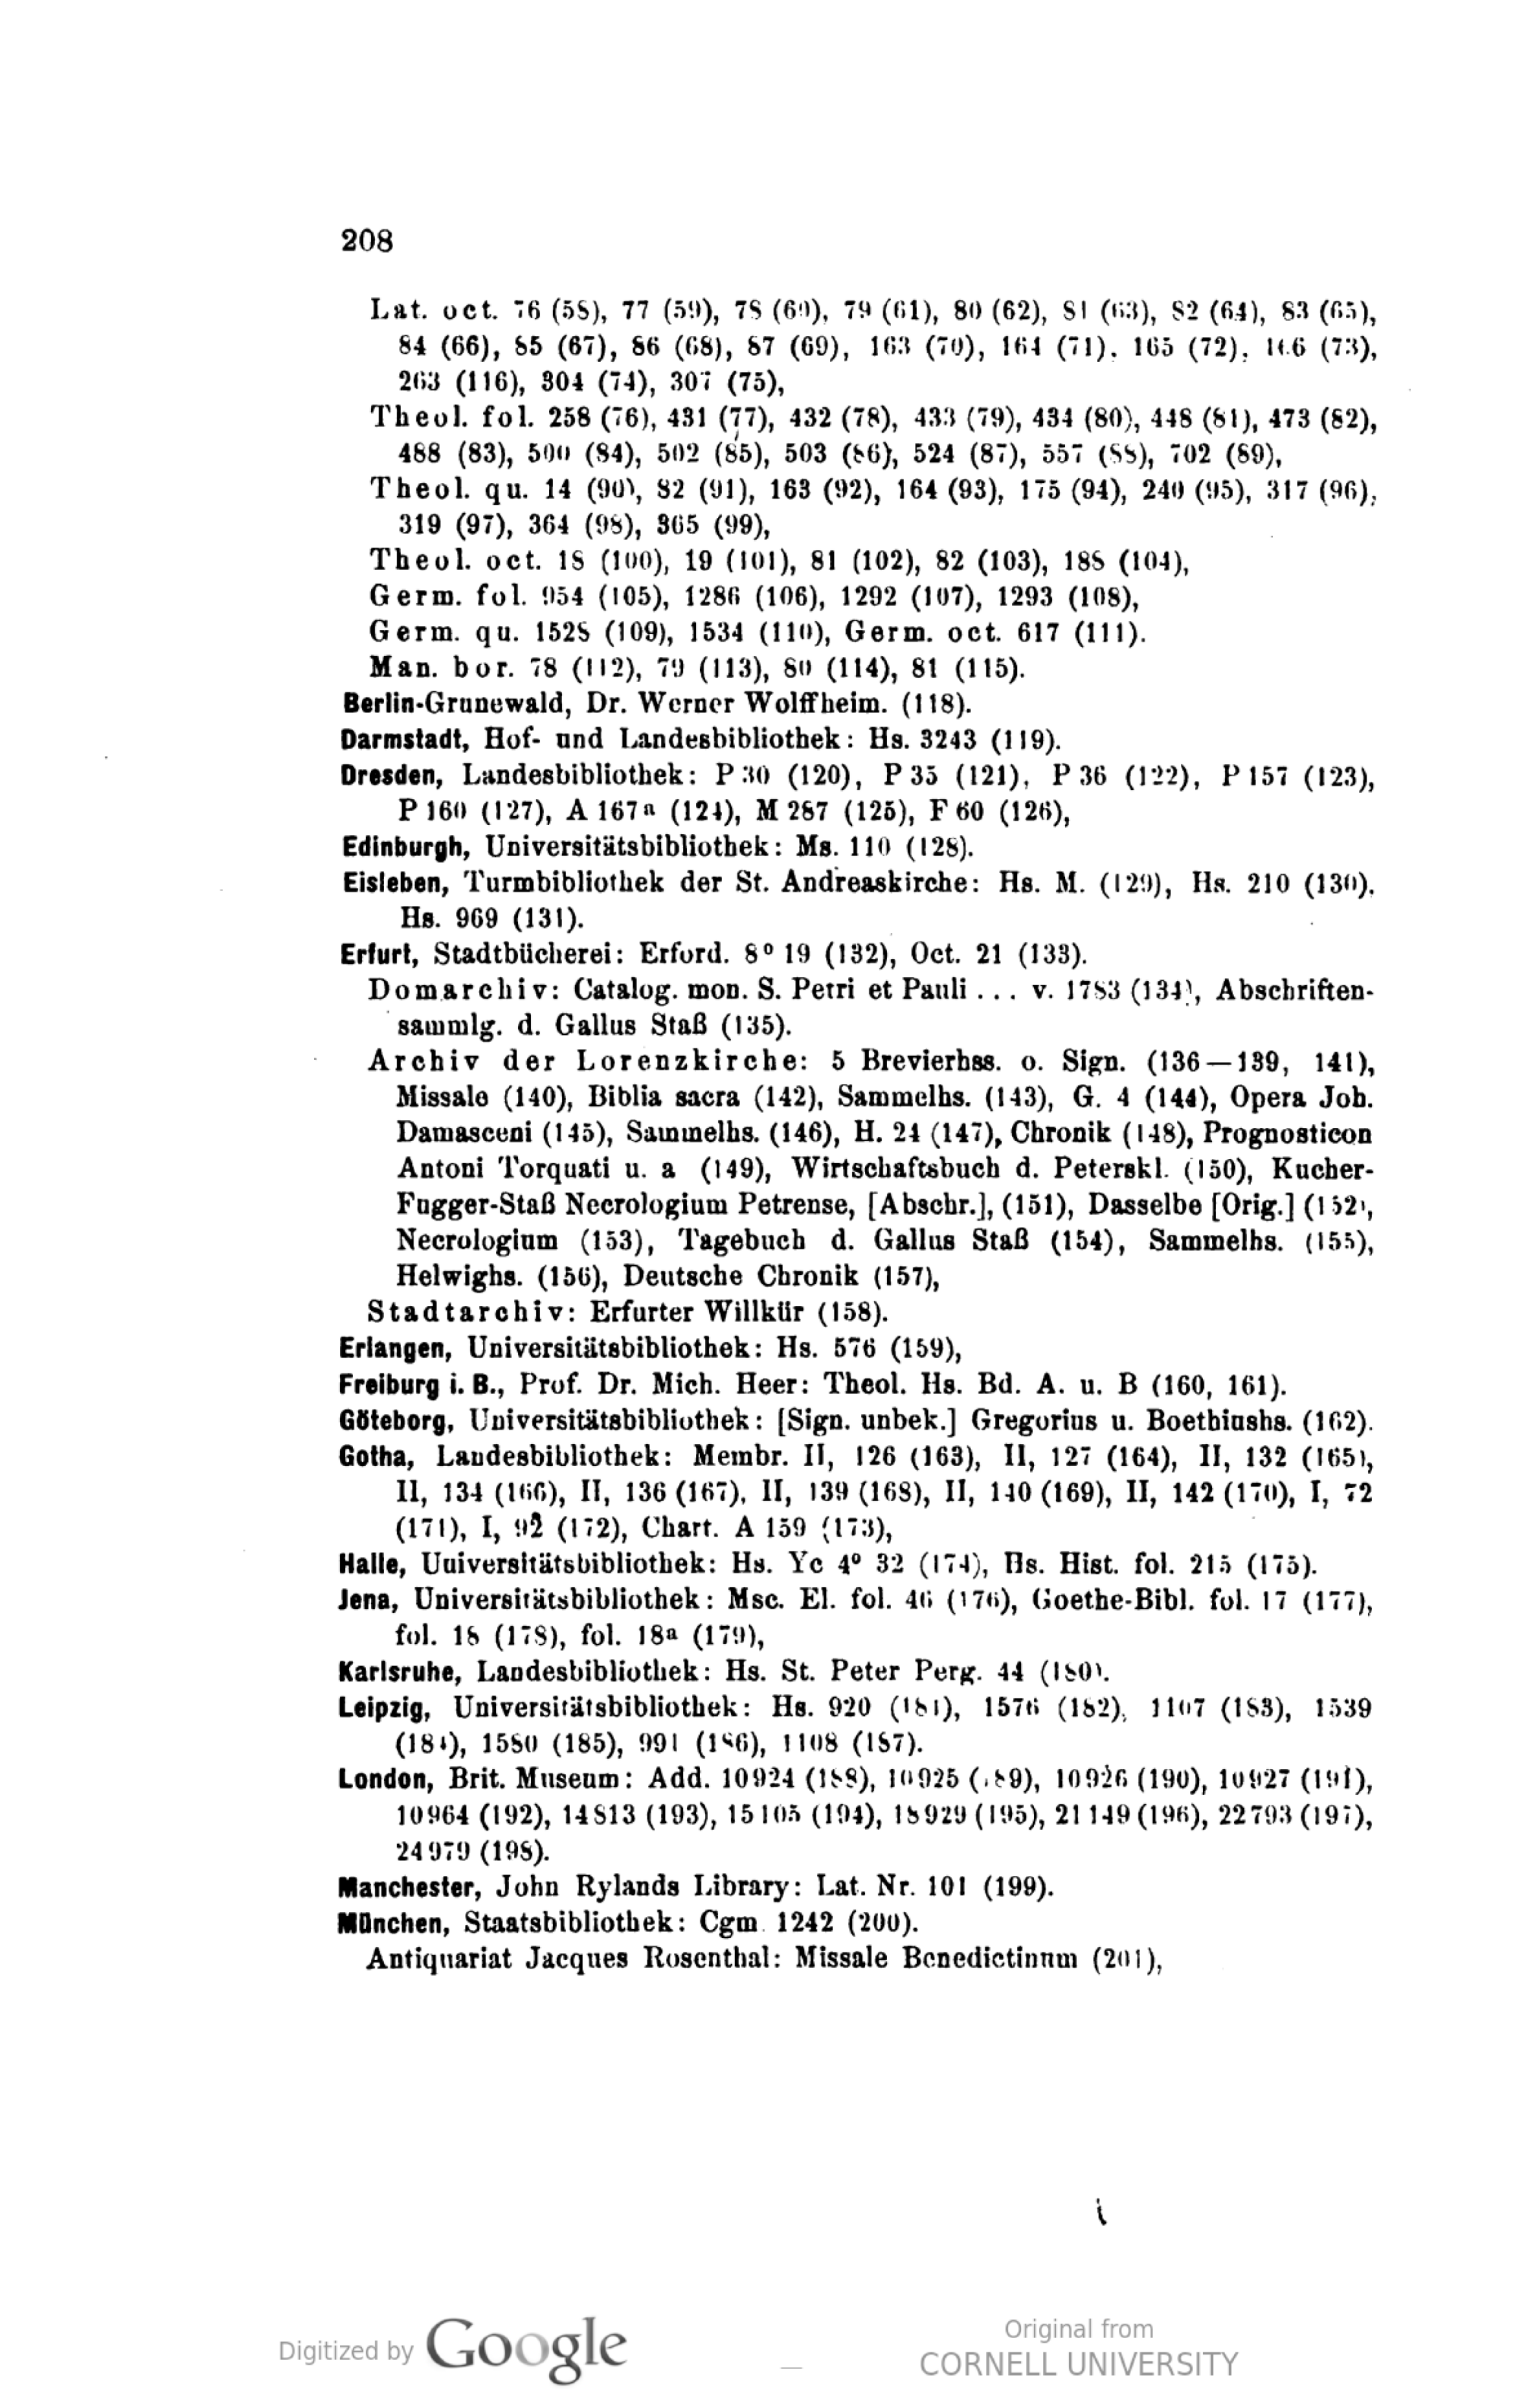 208
Lat. oct. 76 (58), 77 (59), 78 (60), 79 (61), 80 (62), 81 (63), 82 (64), 83 (65),
84 (66), 85 (67), 86 (68), 87 (69), 163 (70), 164 (71), 165 (72), 166 (73),
263 (116), 304 (74), 307 (75),
Theol. fol. 258 (76), 431 (77), 432 (78), 433 (79), 434 (80), 448 (81), 473 (82),
488 (83), 500 (84), 502 (85), 503 (86), 524 (87), 557 (88), 702 (89),
Theol. qu. 14 (90), 82 (91), 163 (92), 164 (93), 175 (94), 240 (95), 317 (96),
319 (97), 364 (98), 365 (99),
Theol. oct. 18 (100), 19 (101), 81 (102), 82 (103), 188 (104),
Germ. fol. 954 (105), 1286 (106), 1292 (107), 1293 (108),
Germ. qu. 1528 (109), 1534 (110), Germ. oct. 617 (111).
Man. bor. 78 (112), 79 (113), 80 (114), 81 (115).
Berlin-Grunewald, Dr. Werner Wolffheim. (118).
Darmstadt, Hof- und Landesbibliothek: Hs. 3243 (119).
Dresden, Landesbibliothek: P 30 (120), P 35 (121), P 36 (122), P 157 (123),
P 160 (127), A 167a (124), M 287 (125), F 60 (126),
Edinburgh, Universitätsbibliothek: Ms. 110 (128).
Eisleben, Turmbibliothek der St. Andreaskirche: Hs. M. (129), Hs. 210 (130),
Hs. 969 (131).
Erfurt, Stadtbücherei: Erford. 8° 19 (132), Oct. 21 (133).
Domarchiv: Catalog. mon. S. Petri et Pauli ... v. 1783 (134), Abschriften-
sammlg. d. Gallus Staß (135).
Archiv der Lorenzkirche: 5 Brevierhss. o. Sign. (136—139, 141),
Missale (140), Biblia sacra (142), Sammelhs. (143), G. 4 (144), Opera Joh.
Damasceni (145), Sammelhs. (146), H. 24 (147), Chronik (148), Prognosticon
Antoni Torquati u. a (149), Wirtschaftsbuch d. Peterskl. (150), Kucher-
Fugger-Staß Necrologium Petrense, [Abschr.], (151), Dasselbe [Orig.] (152),
Necrologium (153), Tagebuch d. Gallus Staß (154), Sammelhs. (155),
Helwighs. (156), Deutsche Chronik (157),
Stadtarchiv: Erfurter Willkür (158).
Erlangen, Universitätsbibliothek: Hs. 576 (159),
Freiburg i. B., Prof. Dr. Mich. Heer: Theol. Hs. Bd. A. u. B (160, 161).
Göteborg, Universitätsbibliothek: [Sign. unbek.] Gregorius u. Boethiushs. (162).
Gotha, Landesbibliothek: Membr. II, 126 (163), II, 127 (164), II, 132 (165),
II, 134 (166), II, 136 (167), II, 139 (168), II, 140 (169), II, 142 (170), I, 72
(171), I, 92 (172), Chart. A 159 (173),
Halle, Universitätsbibliothek: Hs. Yc 4° 32 (174), Hs. Hist. fol. 215 (175).
Jena, Universitätsbibliothek: Msc. El. fol. 46 (176), Goethe-Bibl. fol. 17 (177),
fol. 18 (178), fol. 18a (179),
Karlsruhe, Landesbibliothek: Hs. St. Peter Perg. 44 (180).
Leipzig, Universitätsbibliothek: Hs. 920 (181), 1576 (182), 1107 (183), 1539
(184), 1580 (185), 991 (186), 1108 (187).
London, Brit. Museum: Add. 10924 (188), 10925 (189), 10926 (190), 10927 (191),
10964 (192), 14813 (193), 15105 (194), 18929 (195), 21149 (196), 22793 (197),
24979 (198).
Manchester, John Rylands Library: Lat. Nr. 101 (199).
München, Staatsbibliothek: Cgm 1242 (200).
Antiquariat Jacques Rosenthal: Missale Benedictinum (201),
Digitized by Google
Original from
CORNELL UNIVERSITY